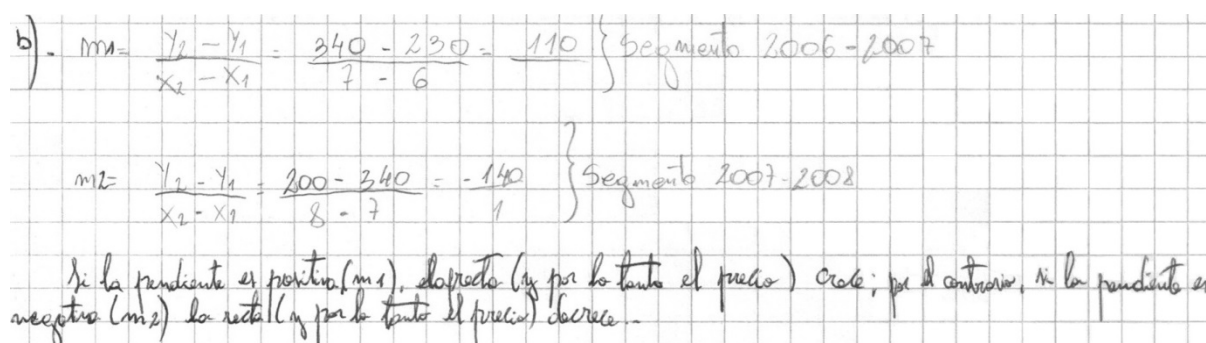 b). m1= y2 - y1 / x2 - x1 = 340 - 230 / 7 - 6 = 110 } Segmento 2006-2007
m2= y2 - y1 / x2 - x1 = 200 - 340 / 8 - 7 = -140 / 1 } Segmento 2007-2008
Si la pendiente es positiva (m1), la recta (y por lo tanto el precio) crece; por el contrario, si la pendiente es
negativa (m2) la recta (y por lo tanto el precio) decrece.